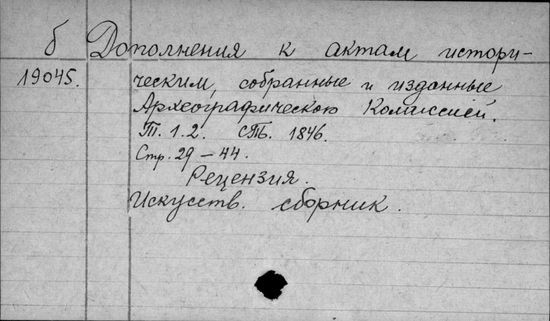 б Дополнения к актам истори-
19045. ческим, собранные и изданные
Археографическою Комиссией.
Т. 1. 2. СПб. 1846.
Стр. 29 – 44.
Рецензия.
Искусств. сборник.